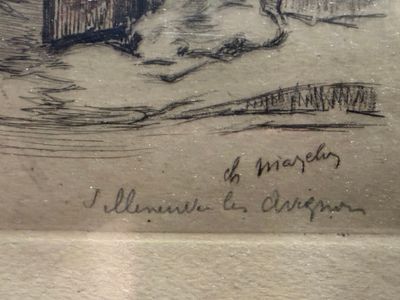 ch
Villeneuve les Avignon